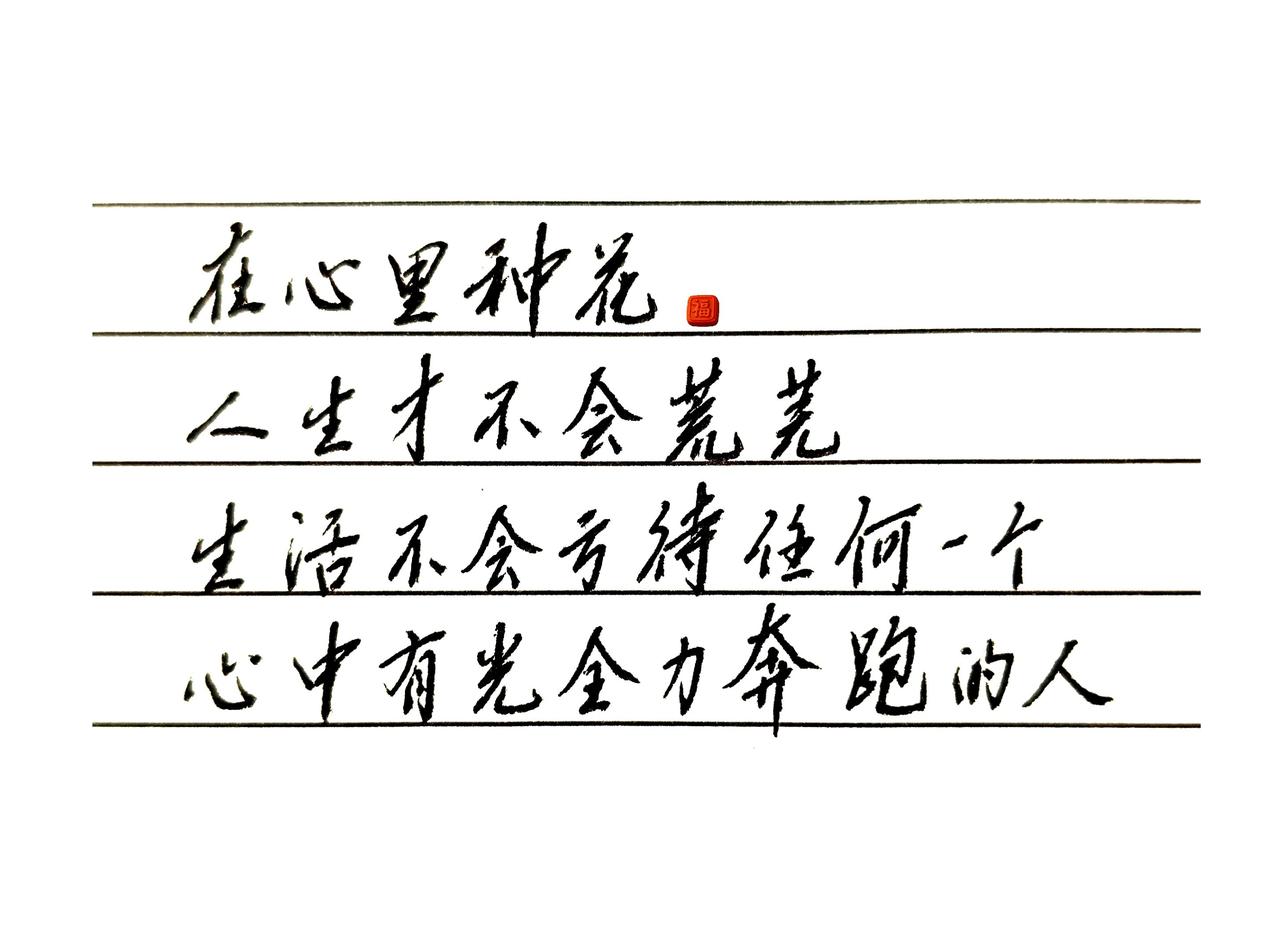 在心里种花 福
人生才不会荒芜
生活不会亏待任何一个
心中有光全力奔跑的人